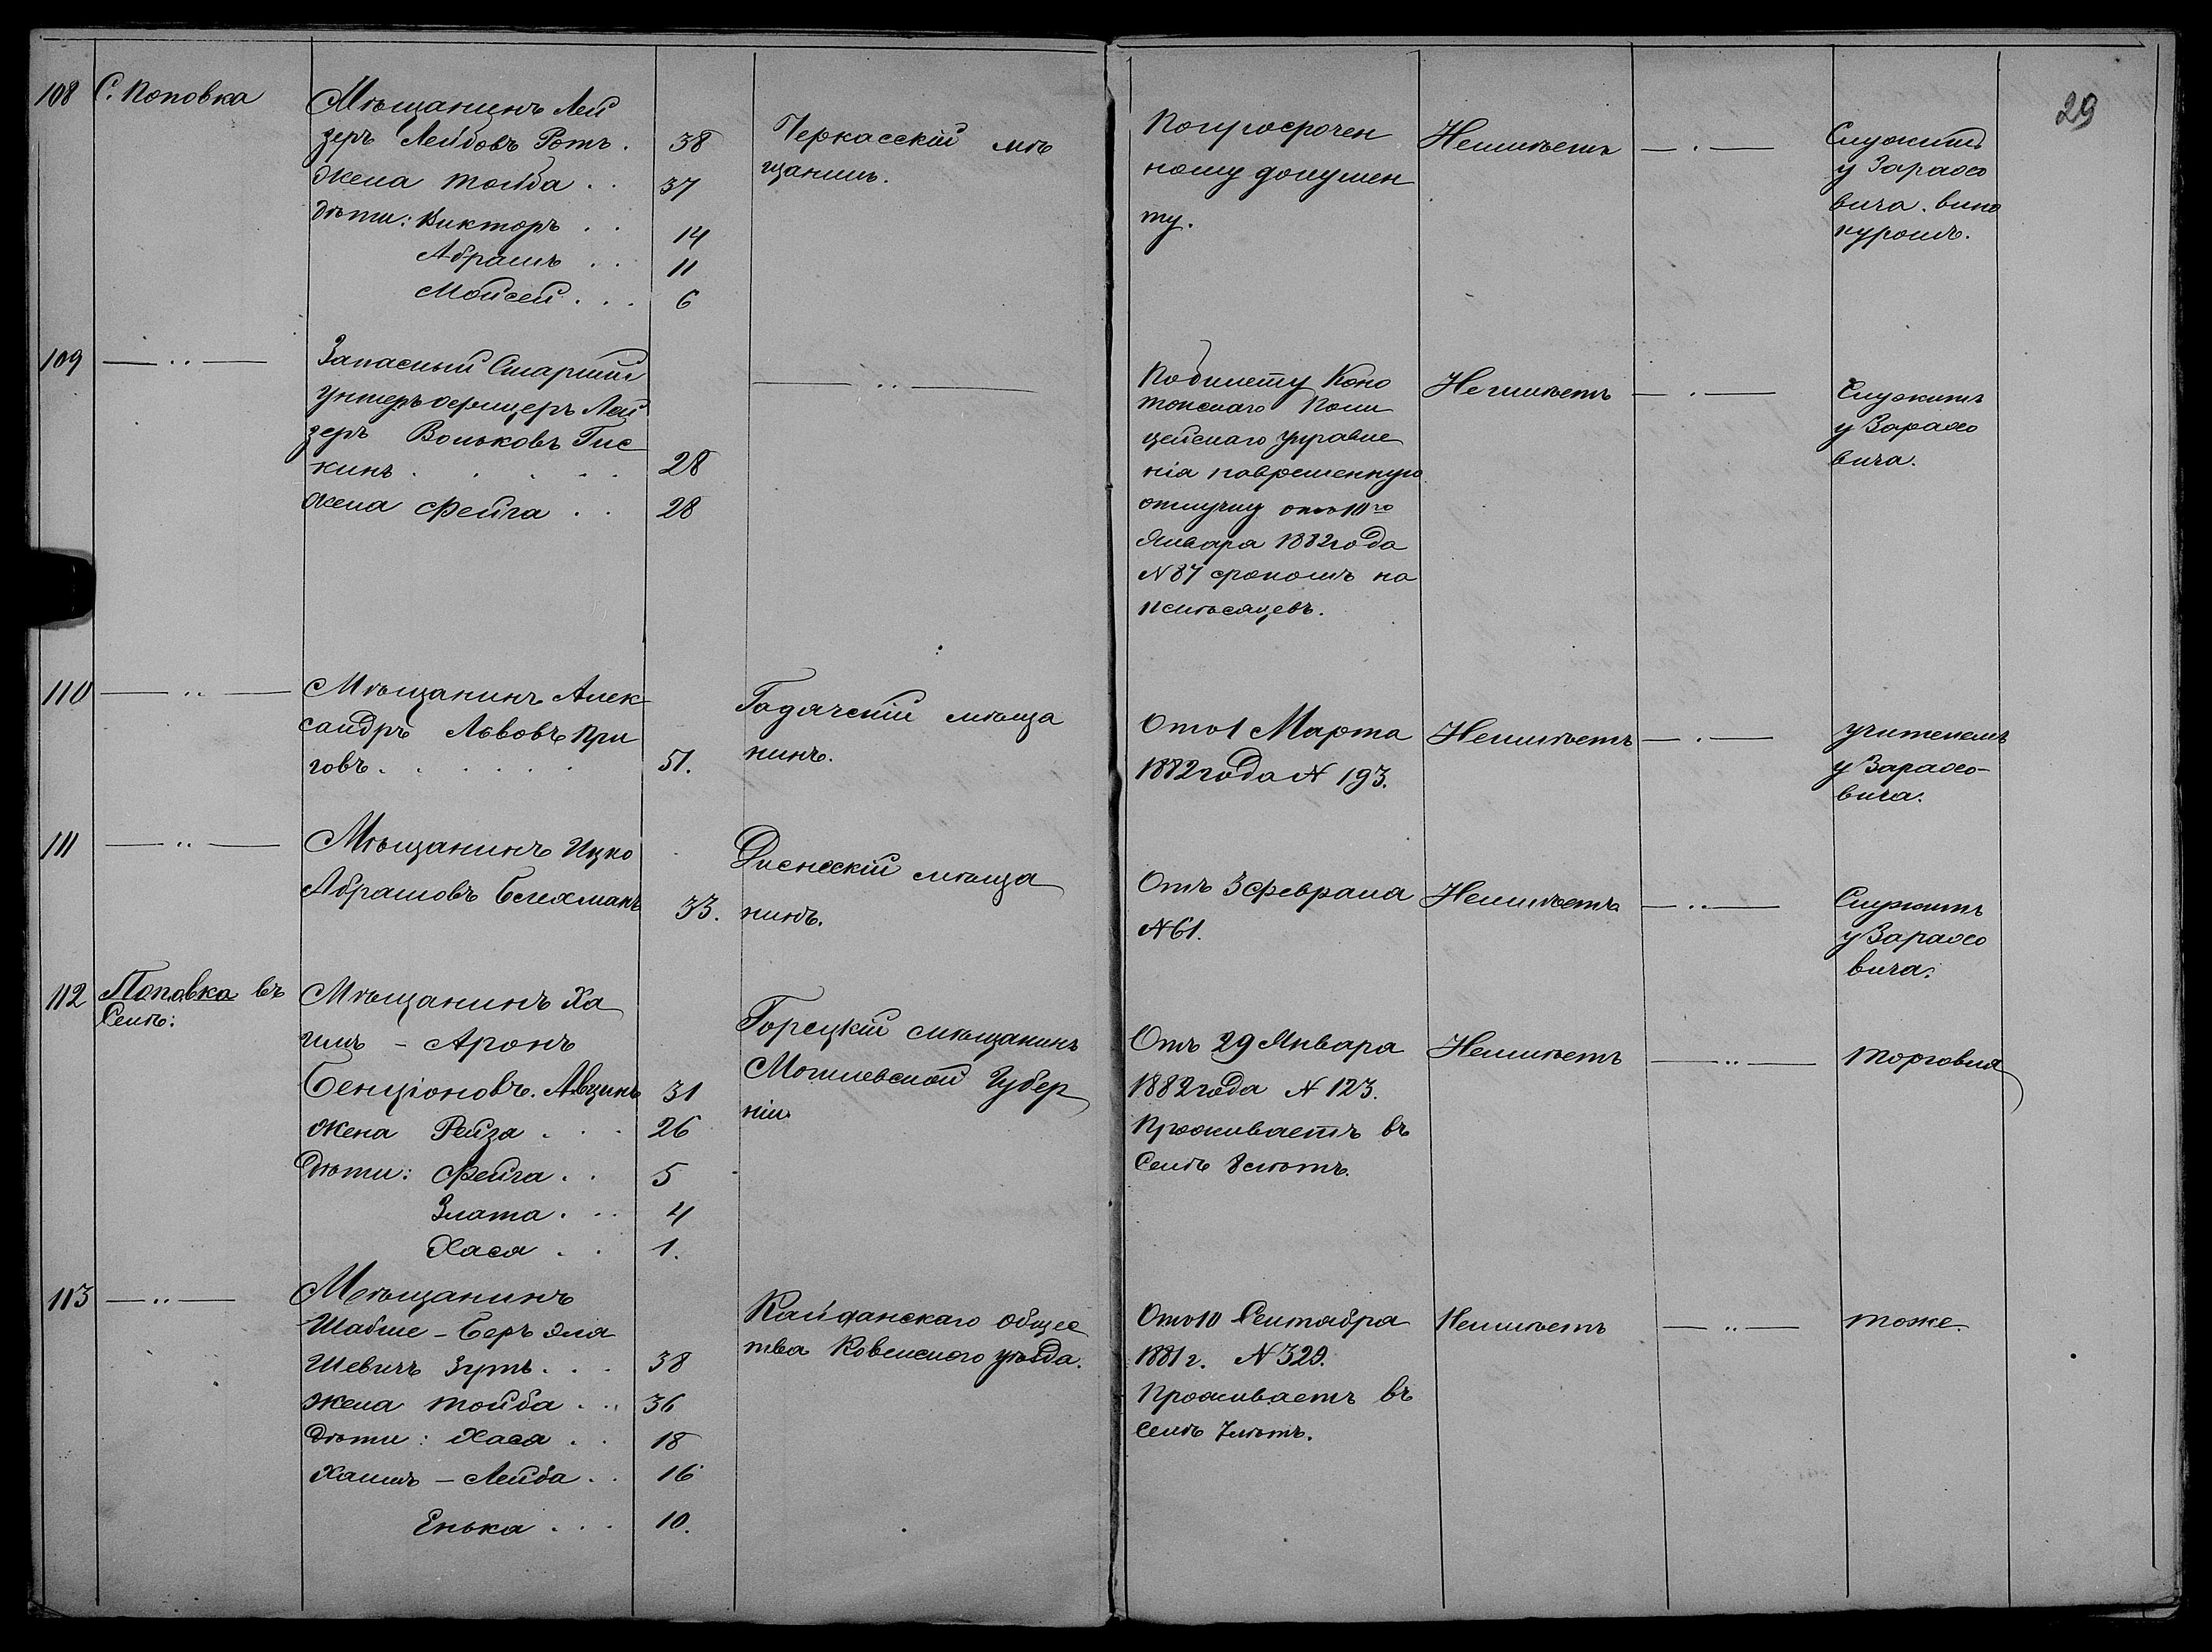 29
108 С. Поповка
Мѣщанинъ Лей
зеръ Лейбовъ Ротъ. 38
Жена Тойба . . 37
Дѣти: Викторъ . . 14
Абрамъ . . 11
Мойсей . . . 6
Черкасскій мѣ
щанинъ.
По просрочен
ному докумен
ту.
Неимѣетъ — . —
Служитъ
у Зарахо
вича. вино
куромъ.
109 — .. —
Запасный Старшій
Унтеръ офицеръ Лей
зеръ Вольковъ Гис
кинъ . . . . . 28
Жена Фейга . . 28
— .. —
По билету Коно
топскаго Поли
цейскаго управле
нія на временную
отлучку отъ 10го
Января 1882 года
N 87 срокомъ на
11 мѣсяцевъ.
Неимѣетъ — . —
Служитъ
у Зарахо
вича.
110 — .. —
Мѣщанинъ Алек
сандръ Львовъ При
говъ . . . . . 51.
Гадячскій мѣща
нинъ.
Отъ 1 Марта
1882 года N 193.
Неимѣетъ — . —
учителемъ
у Зарахо-
вича.
111 — .. —
Мѣщанинъ Ицко
Абрамовъ 33.
Дисненскій мѣща
нинъ.
Отъ 3 февраля
N 61.
Неимѣетъ — .. —
Служитъ
у Зарахо
вича.
112 Поповка въ
Селѣ:
Мѣщанинъ Ха
имъ - Аронъ
Бенціоновъ. Авцинъ 31
Жена Рейза . . . 26
Дѣти: Фейга . . 5
Злата . . . 4
Хася . . 1.
Горецкій мѣщанинъ
Могилевской Губер
ніи
Отъ 29 Января
1882 года N 123.
Проживаетъ въ
Селѣ 8 лѣтъ.
Неимѣетъ — .. — Торговля
113 — .. —
Мѣщанинъ
Шабше - Беръ Эля
Шевичъ Зутъ . . . 38
Жена Тойба . . . 36
Дѣти: Хася . . 18
Хаимъ - Лейба . . 16
Енька . . . 10.
Кайданскаго общес
тва Ковенского уѣзда.
Отъ 10 Сентября
1881 г. N 320.
Проживаетъ въ
Селѣ 7 лѣтъ.
Неимѣетъ — .. — тоже.